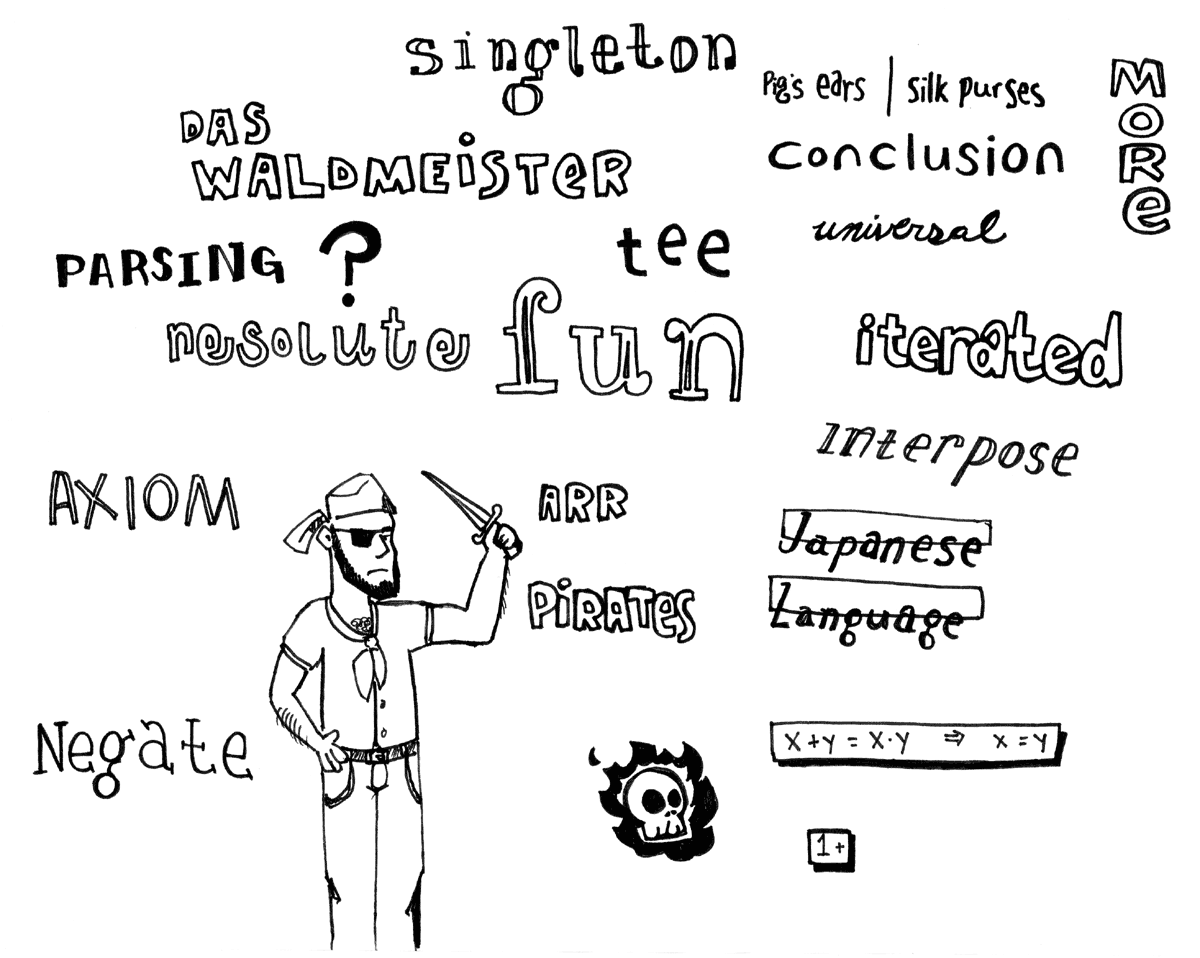 singleton
Pig's ears | silk purses
MORe
DAS
WALDMEiSTeR
conclusion
universal
PARSING ?
tee
resolute
fun
iterated
Interpose
AXIOM
ARR
PiRATES
Japanese
Language
Negate
X+Y = X·Y ⇒ X=Y
1+